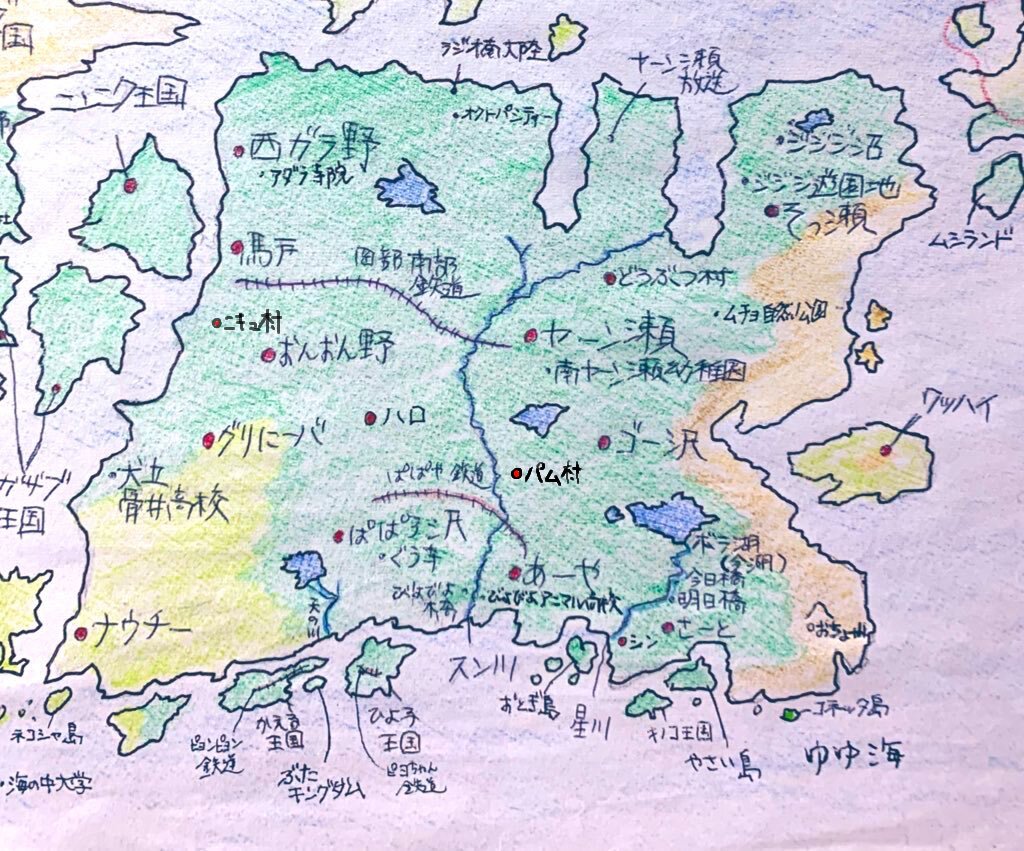 国
ラジオ南大陸
ヤーシ瀬
放送
ニャンク王国
・オクトパンティー
西ガラ野
・アダラ寺院
・ジジジジ石
・ジジジジ遊園地
そっコ瀬
ムシランド
馬戸
西部南部
鉄道
どうぶつ村
・ムチョ自然公園
・ニキュ村
おんおん野
ヤーシ瀬
・南ヤーシ瀬幼稚園
ワッハイ
ハロ
グリにーバ
ゴー沢
ぱぱや鉄道
パム村
・犬立
骨井高校
王国
ぱぱ子こ尺
・ぐう寺
あーや
・ぴよぴよアニマル高校
(今湖)
今日橋
・明日橋
犬の川
ナウチー
シン
さーと
スン川
ネコシャ島
・海の中大学
ピョンピョン
鉄道
かえる
王国
ぶた
キングダム
ひよ子
王国
ピヨちゃん
鉄道
おとぎ島
星川
キノコ王国
やさい島
コネッタ島
ゆゆ海